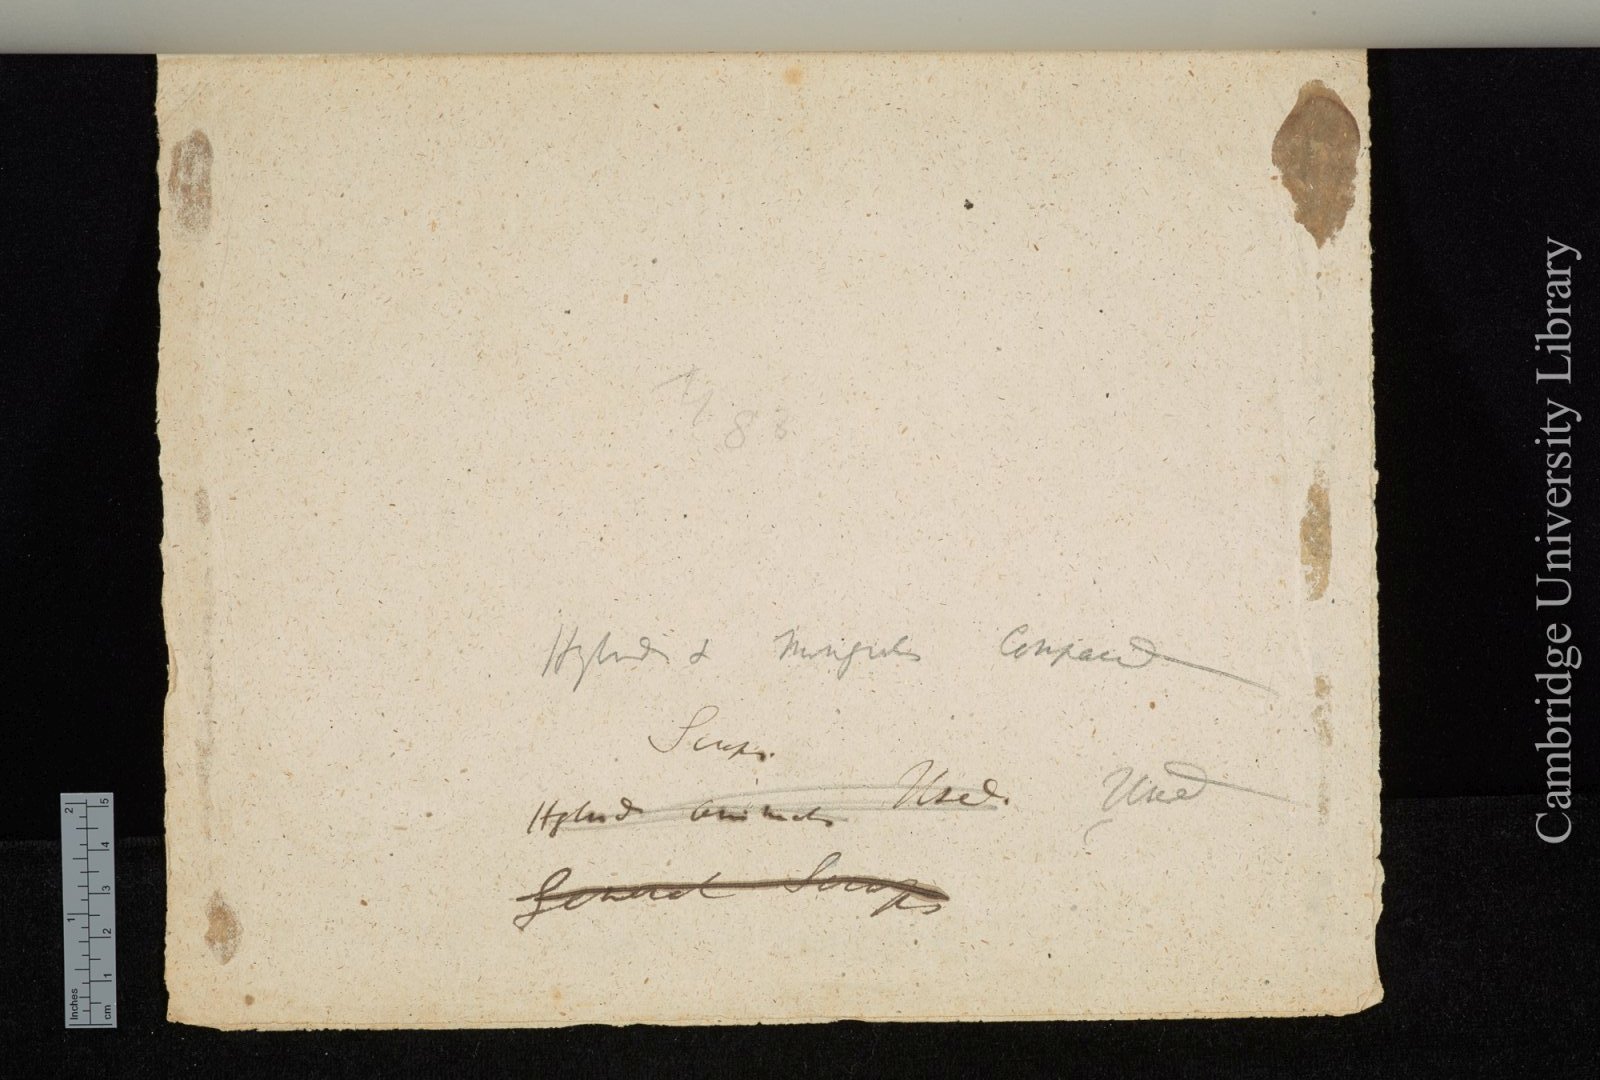 Hybrids & Mongrels Compared
Scraps.
Hybrid animals Used. Used
General Scraps
Cambridge University Library
Inches 1 2
cm 1 2 3 4 5